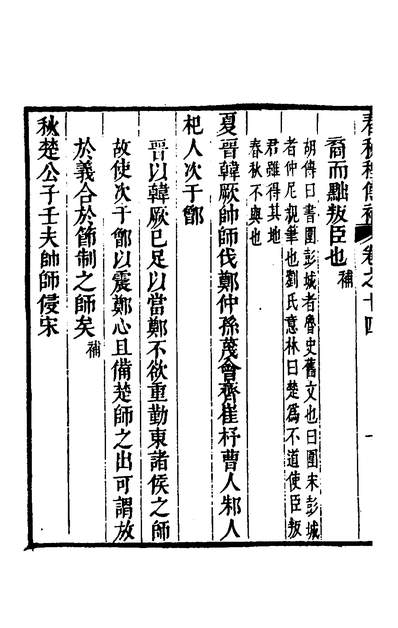 春秋稗傳補 卷之十四 一
裔而黜叛臣也補
胡傳曰書圍彭城者魯史舊文也曰圍宋彭城
者仲尼親筆也劉氏意林曰楚爲不道使臣叛
君雖得其地
春秋不與也
夏晉韓厥帥師伐鄭仲孫蔑會齊崔杼曹人邾人
杞人次于鄫
晉以韓厥已足以當鄭不欲重勤東諸侯之師
故使次于鄫以震鄭心且備楚師之出可謂放
於義合於節制之師矣補
秋楚公子壬夫帥師侵宋